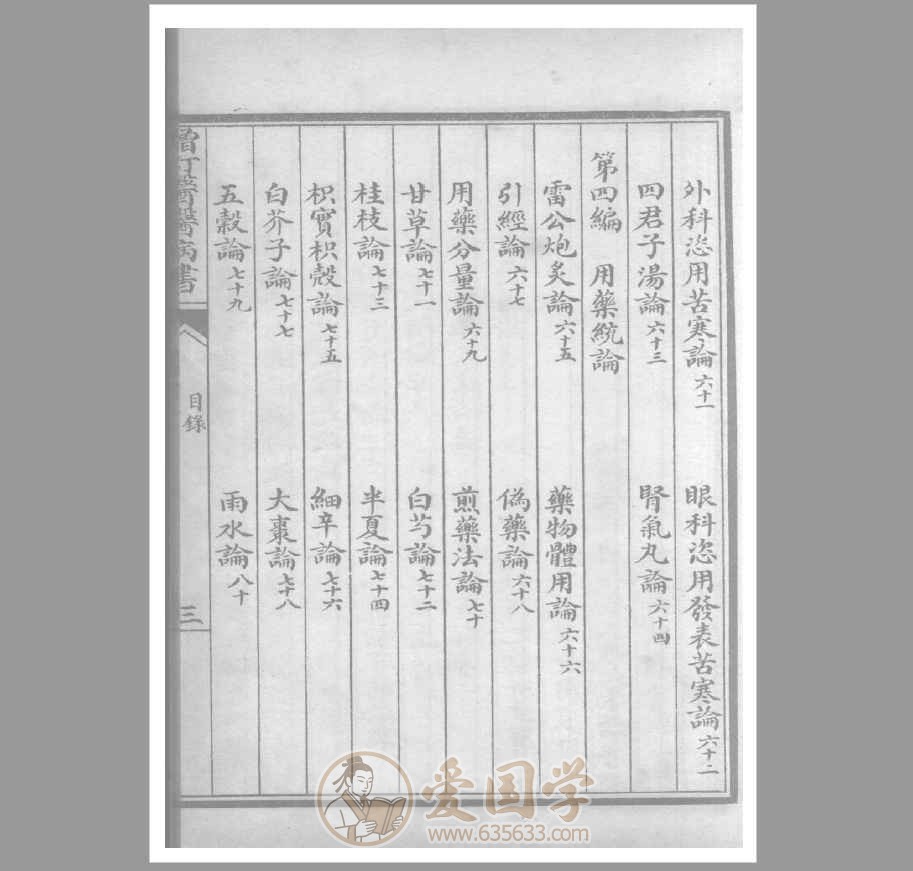 外科恣用苦寒論六十一　眼科恣用發表苦寒論六十二
四君子湯論六十三　腎氣丸論六十四
第四編　用藥統論
雷公炮炙論六十五　藥物體用論六十六
引經論六十七　偽藥論六十八
用藥分量論六十九　煎藥法論七十
甘草論七十一　白芍論七十二
桂枝論七十三　半夏論七十四
枳實枳殼論七十五　細辛論七十六
白芥子論七十七　大棗論七十八
五穀論七十九　雨水論八十
醫醫病書　目錄　三
爱国学
www.635633.com